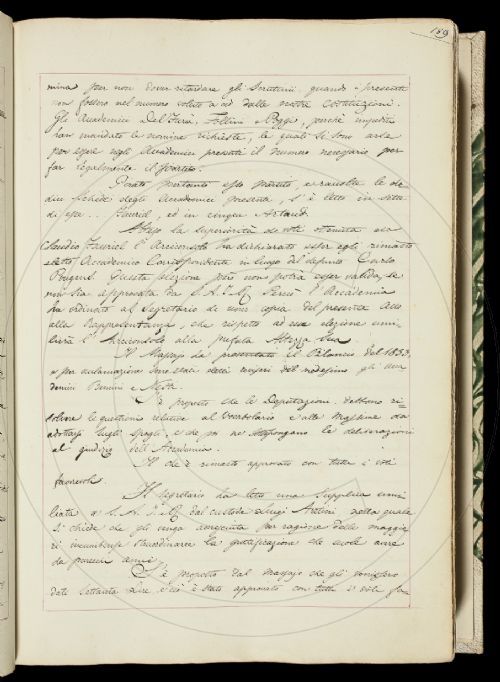 189
mina per non dover ritardare gli Scrutinii quando i presenti
non fossero nel numero voluto a ed dalle nostre Costituzioni.
Gli Accademici Del Furia, Follini e Poggi, perché impediti
han mandato le nomine richieste, le quali si sono
per essere negli Accademici presenti il numero necessario per
far legalmente il Partito.
Posto pertanto esso partito, e raccolte le
dieci schede degli Accademici presenti, s'è letto in sette
di esse Fauriel, ed in cinque Artaud.
Attesa la superiorità de voti ottenuta da
Claudio Fauriel l'Arciconsolo ha dichiarato esser egli rimasto
eletto Accademico Corrispondente in luogo del defunto Carlo
Pougens. Questa elezione però non potrà esser valida, se
non sia approvata da S. A. I. e R. Perciò l'Accademia
ha ordinato al Segretario di unir copia del presente Atto
alla Rappresentanza, che rispetto ad una elezione
l'Arciconsolo alla prefata Altezza Sua.
Il Massajo ha presentato il Bilancio del 1833,
e per acclamazione sono stati eletti revisori del medesimo gli Acca-
demici Benini e Nesti.
S'è proposto che le Deputazioni debbano ri-
solvere le questioni relative al Vocabolario e alle Massime da
adottarsi sugli spogli, e che poi ne sottopongano le deliberazioni
al giudizio dell'Accademia.
Il che è rimasto approvato con tutti i voti
favorevoli.
Il Segretario ha letto una supplica umi-
liata a S. A. I. e R. dal custode Luigi Artini, nella quale
si chiede che gli venga accresciuta per ragione delle maggio-
ri incumbenze straordinarie la gratificazione che suole avere
da parecchi anni.
S'è proposto dal Massajo che gli venissero
date settanta Lire e ciò è stato approvato con tutti i voti fa